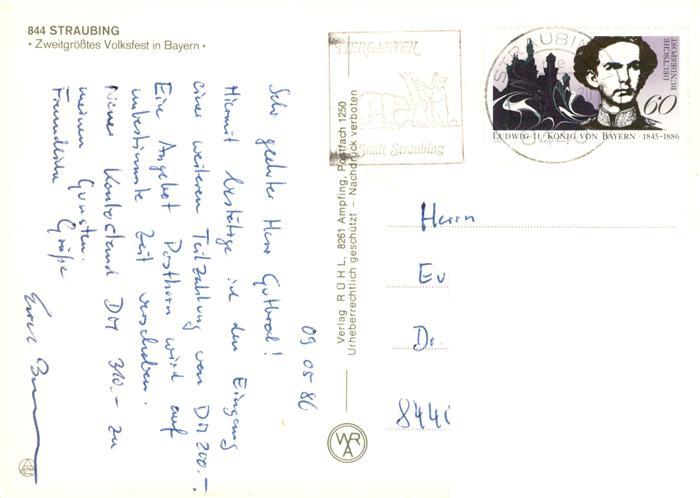 844 STRAUBING
• Zweitgrößtes Volksfest in Bayern •
09 05 86
Sehr geehrter Herr Guthrod!
Hiermit bestätige ich den Eingang
einer weiteren Teilzahlung von DM 200.–.
Eine Angebot Posthorn wird auf
unbestimmte Zeit verschoben.
Neues Kontostand DM 310.– zu
meinen Gunsten.
Freundliche Grüße
Verlag RÜHL, 8261 Ampfing, Postfach 1250
Urheberrechtlich geschützt – Nachdruck verboten
WRA
TIERGARTEN
Stadt Straubing
STRAUBING
DEUTSCHE BUNDESPOST
60
LUDWIG II. KÖNIG VON BAYERN · 1845-1886
Herrn
Ev
Dr
844